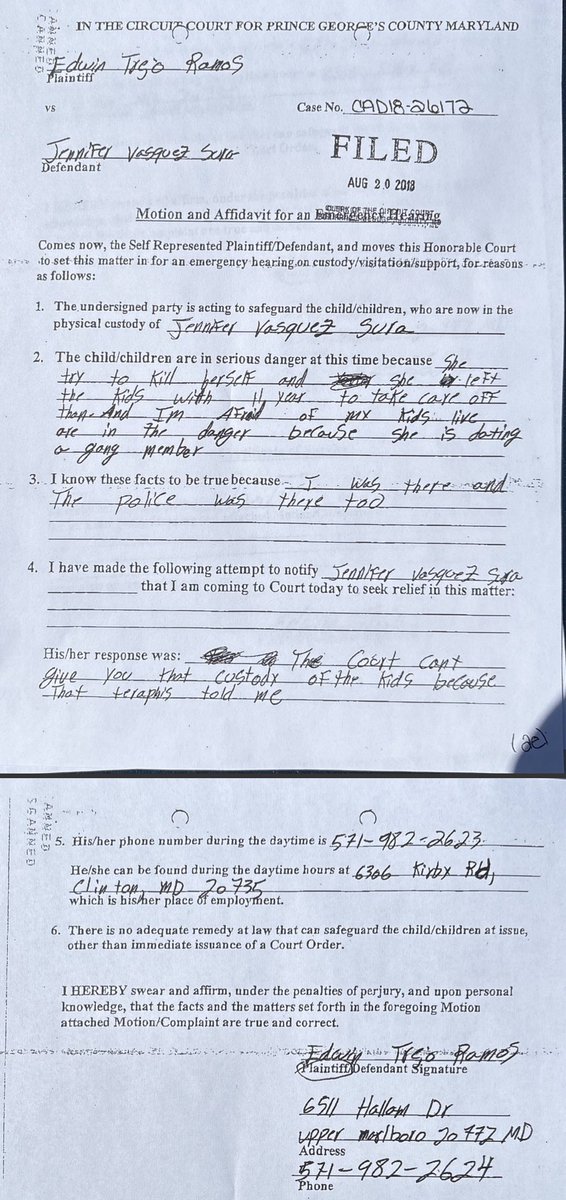 IN THE CIRCUIT COURT FOR PRINCE GEORGE'S COUNTY MARYLAND
Edwin Trejo Ramos
Plaintiff
vs
Case No. CAD18-26172
Jennifer Vasquez Sura
Defendant
FILED
AUG 20 2018
CLERK OF THE CIRCUIT COURT
Motion and Affidavit for an Emergency Hearing
Comes now, the Self Represented Plaintiff/Defendant, and moves this Honorable Court
to set this matter in for an emergency hearing on custody/visitation/support, for reasons
as follows:
1. The undersigned party is acting to safeguard the child/children, who are now in the
physical custody of Jennifer Vasquez Sura
2. The child/children are in serious danger at this time because She
try to kill herself and she left
the kids with 11 year to take care OFF
them. And Im Afraid of my kids live
are in the danger because she is dating
a gang member
3. I know these facts to be true because I was there and
The police was there too
4. I have made the following attempt to notify Jennifer Vasquez Sura
that I am coming to Court today to seek relief in this matter:
His/her response was: The Court cant
give you that custody of the kids because
That teraphis told me
(20)
SCANNED
5. His/her phone number during the daytime is 571-982-2623
He/she can be found during the daytime hours at 6306 Kirby Rd,
Clinton, MD 20735
which is his/her place of employment.
6. There is no adequate remedy at law that can safeguard the child/children at issue,
other than immediate issuance of a Court Order.
I HEREBY swear and affirm, under the penalties of perjury, and upon personal
knowledge, that the facts and the matters set forth in the foregoing Motion
attached Motion/Complaint are true and correct.
Edwin Trejo Ramos
Plaintiff/Defendant Signature
6511 Hallam Dr
upper marlboro 20772 MD
Address
571-982-2624
Phone